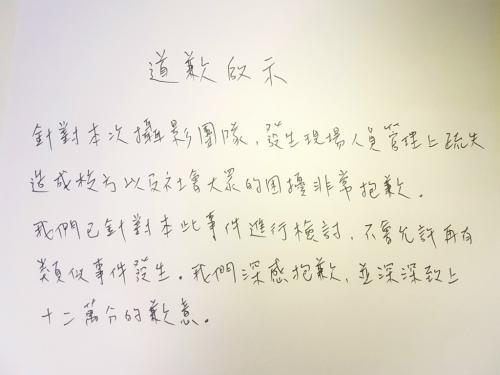 道歉啟示
針對本次攝影團隊，發生現場人員管理上疏失
造成校方以及社會大眾的困擾非常抱歉。
我們已針對本此事件進行檢討，不會允許再有
類似事件發生。我們深感抱歉，並深深致上
十二萬分的歉意。